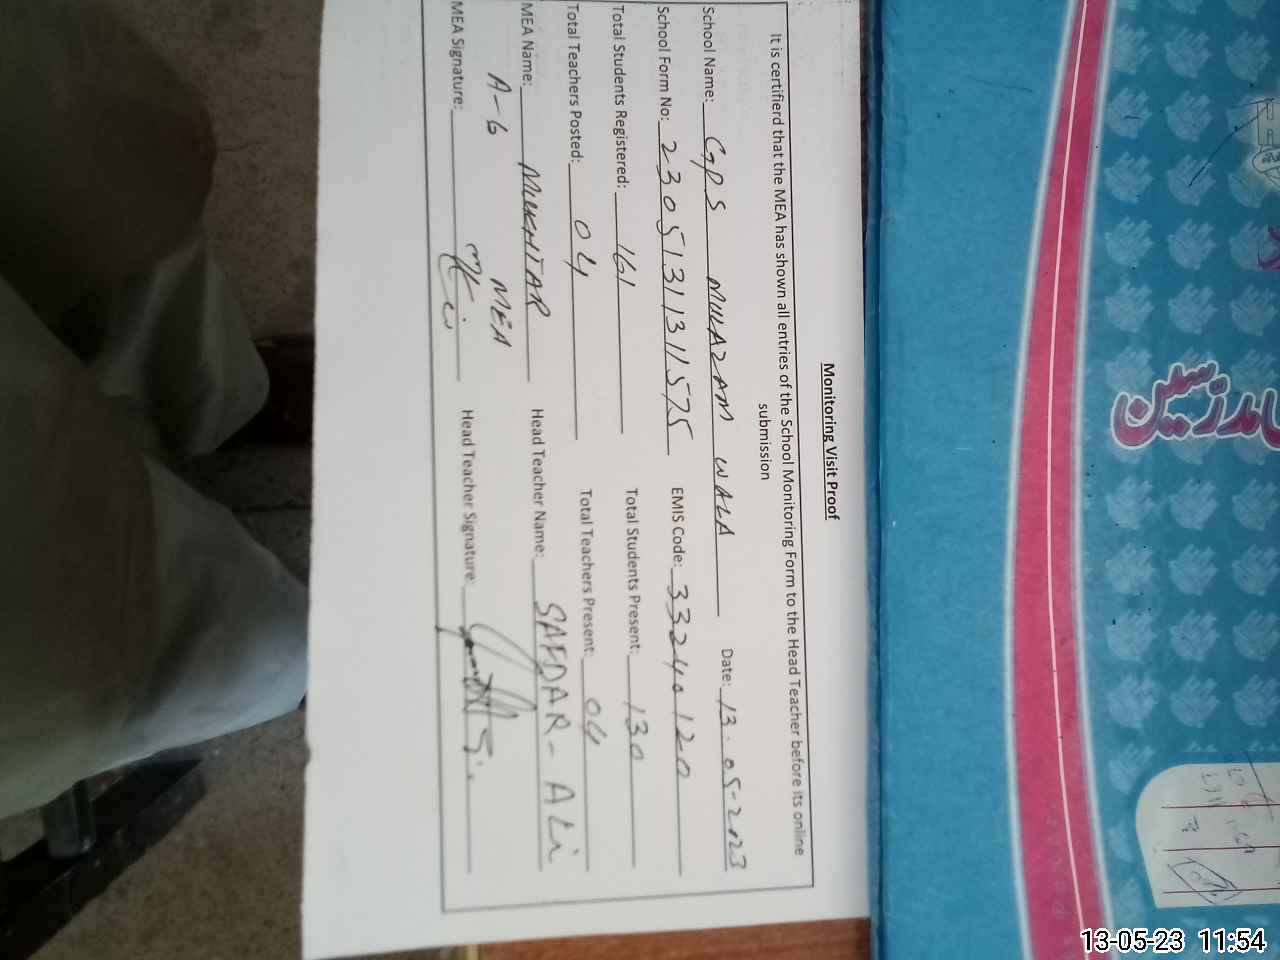 Monitoring Visit Proof
It is certifierd that the MEA has shown all entries of the School Monitoring Form to the Head Teacher before its online
submission
School Name: GPS MUAZAM WALA Date: 13-05-2023
School Form No: 23051311311575 EMIS Code: 33240120
Total Students Registered: 161 Total Students Present: 130
Total Teachers Posted: 04 Total Teachers Present: 04
MEA Name: MUKHTAR Head Teacher Name: SAFDAR-ALi
A-6 MEA
MEA Signature: Head Teacher Signature:
مدرسین
13-05-23 11:54